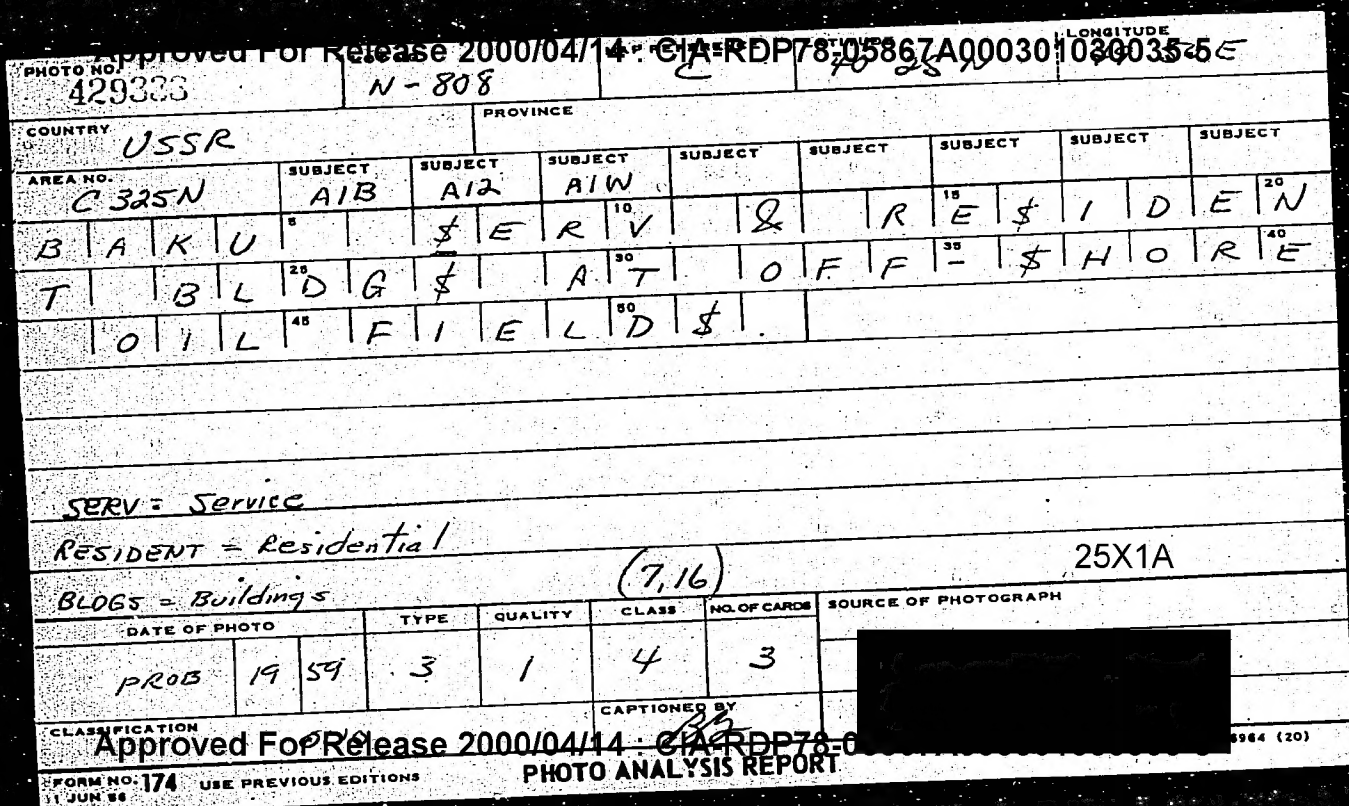 Approved For Release 2000/04/14 : CIA-RDP78-05867A000301030035-5
PHOTO NO. LONGITUDE
N - 808 C 40 25 N
COUNTRY USSR PROVINCE
AREA NO. C 325N SUBJECT A1B SUBJECT A12 SUBJECT A1W SUBJECT SUBJECT SUBJECT SUBJECT SUBJECT
BAKU 5 $ERV 10 & RE 15 $IDEN 20
T BLD 25 G$ AT 30 OFF- 35 $HORE 40
OIL 45 FIELD 50 $.
SERV = Service
RESIDENT = Residential
BLDGS = Buildings (7,16) 25X1A
DATE OF PHOTO TYPE QUALITY CLASS NO. OF CARDS SOURCE OF PHOTOGRAPH
PROB 19 59 3 1 4 3
CLASSIFICATION CAPTIONED BY
Approved For Release 2000/04/14 : CIA-RDP78-0
6964 (20)
FORM NO. 174 USE PREVIOUS EDITIONS PHOTO ANALYSIS REPORT